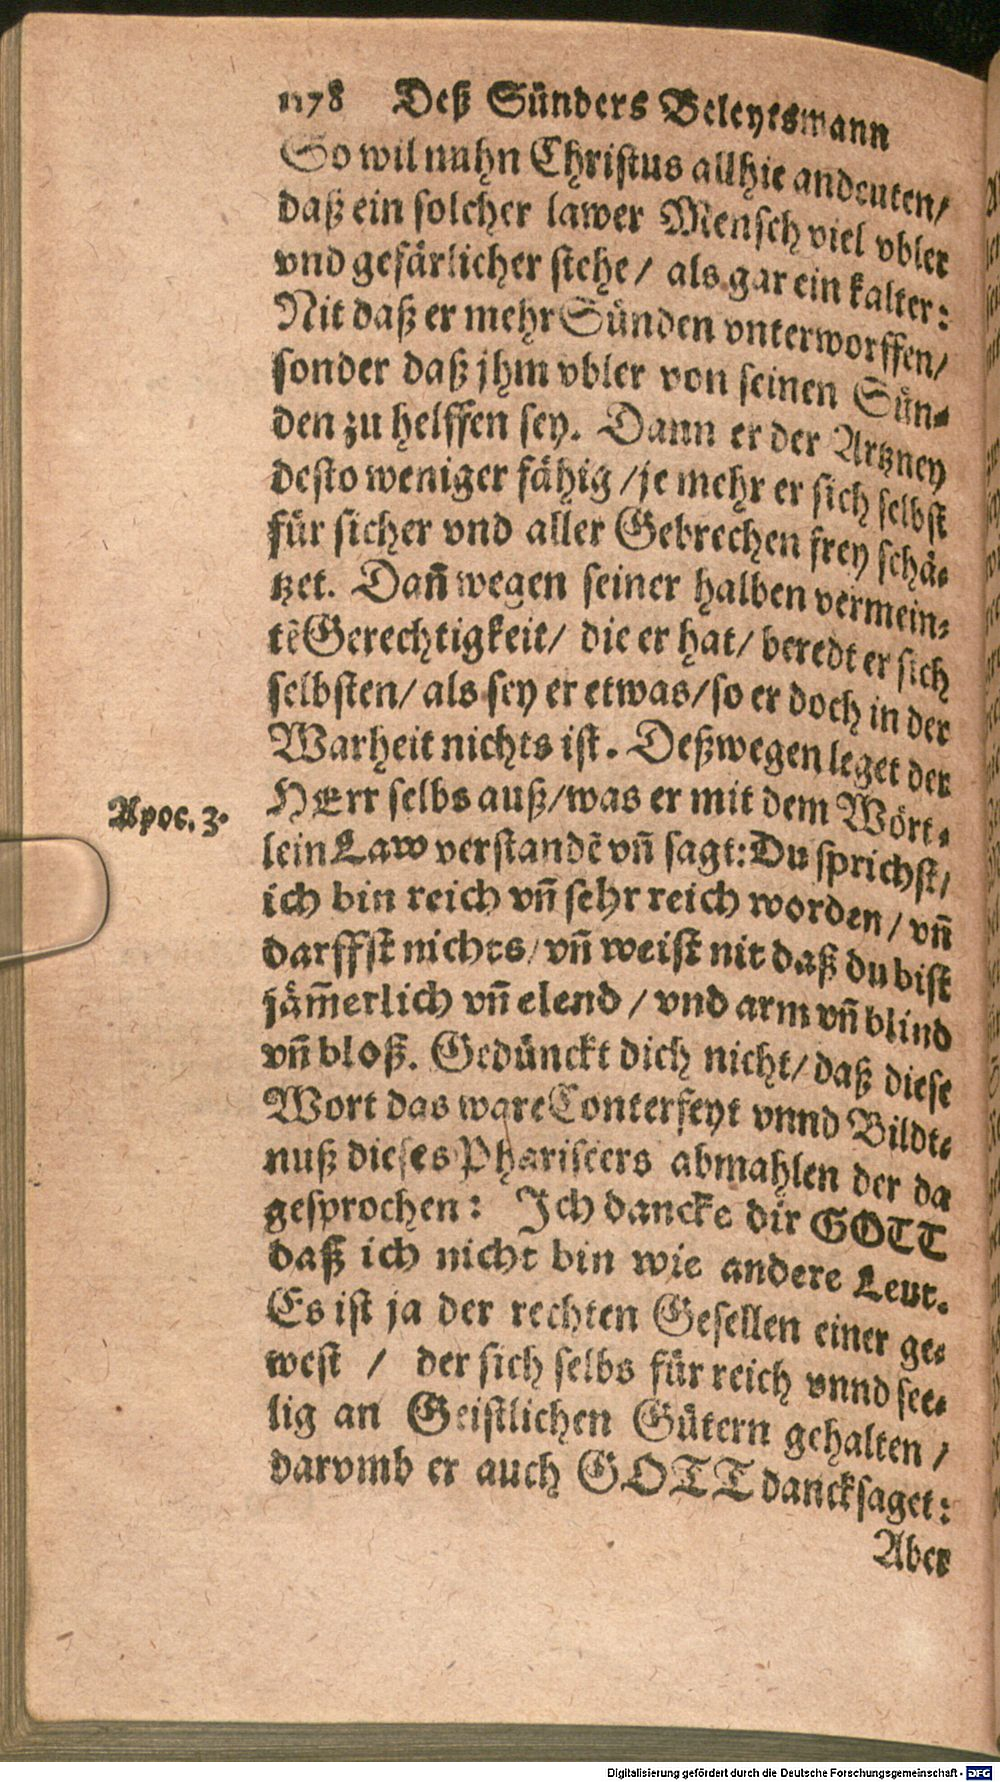 1178 Deß Sünders Beleytsmann
So wil nuhn Christus allhie andeuten/
daß ein solcher lawer Mensch viel vbler
vnd gefärlicher stehe/ als gar ein kalter:
Nit daß er mehr Sünden vnterworffen/
sonder daß jhm vbler von seinen Sün⸗
den zu helffen sey. Dann er der Artzney
desto weniger fähig /je mehr er sich selbst
für sicher vnd aller Gebrechen frey schä⸗
tzet. Dañ wegen seiner halben vermein⸗
tẽ Gerechtigkeit/ die er hat/ beredt er sich
selbsten/ als sey er etwas/so er doch in der
Warheit nichts ist. Deßwegen leget der
Apoc. 3.
HErr selbs auß/was er mit dem Wört⸗
lein Law verstandẽ vñ sagt: Du sprichst/
ich bin reich vñ sehr reich worden/ vñ
darffst nichts/ vñ weist nit daß du bist
jäm̃erlich vñ elend / vnd arm vñ blind
vñ bloß. Gedünckt dich nicht/ daß diese
Wort das ware Conterfeyt vnnd Bildt⸗
nuß dieses Phariseers abmahlen der da
gesprochen: Ich dancke dir GOTT
daß ich nicht bin wie andere Leut.
Es ist ja der rechten Gesellen einer ge⸗
west / der sich selbs für reich vnnd see⸗
lig an Geistlichen Gütern gehalten /
darvmb er auch GOTT dancksaget:
Aber
Digitalisierung gefördert durch die Deutsche Forschungsgemeinschaft - DFG